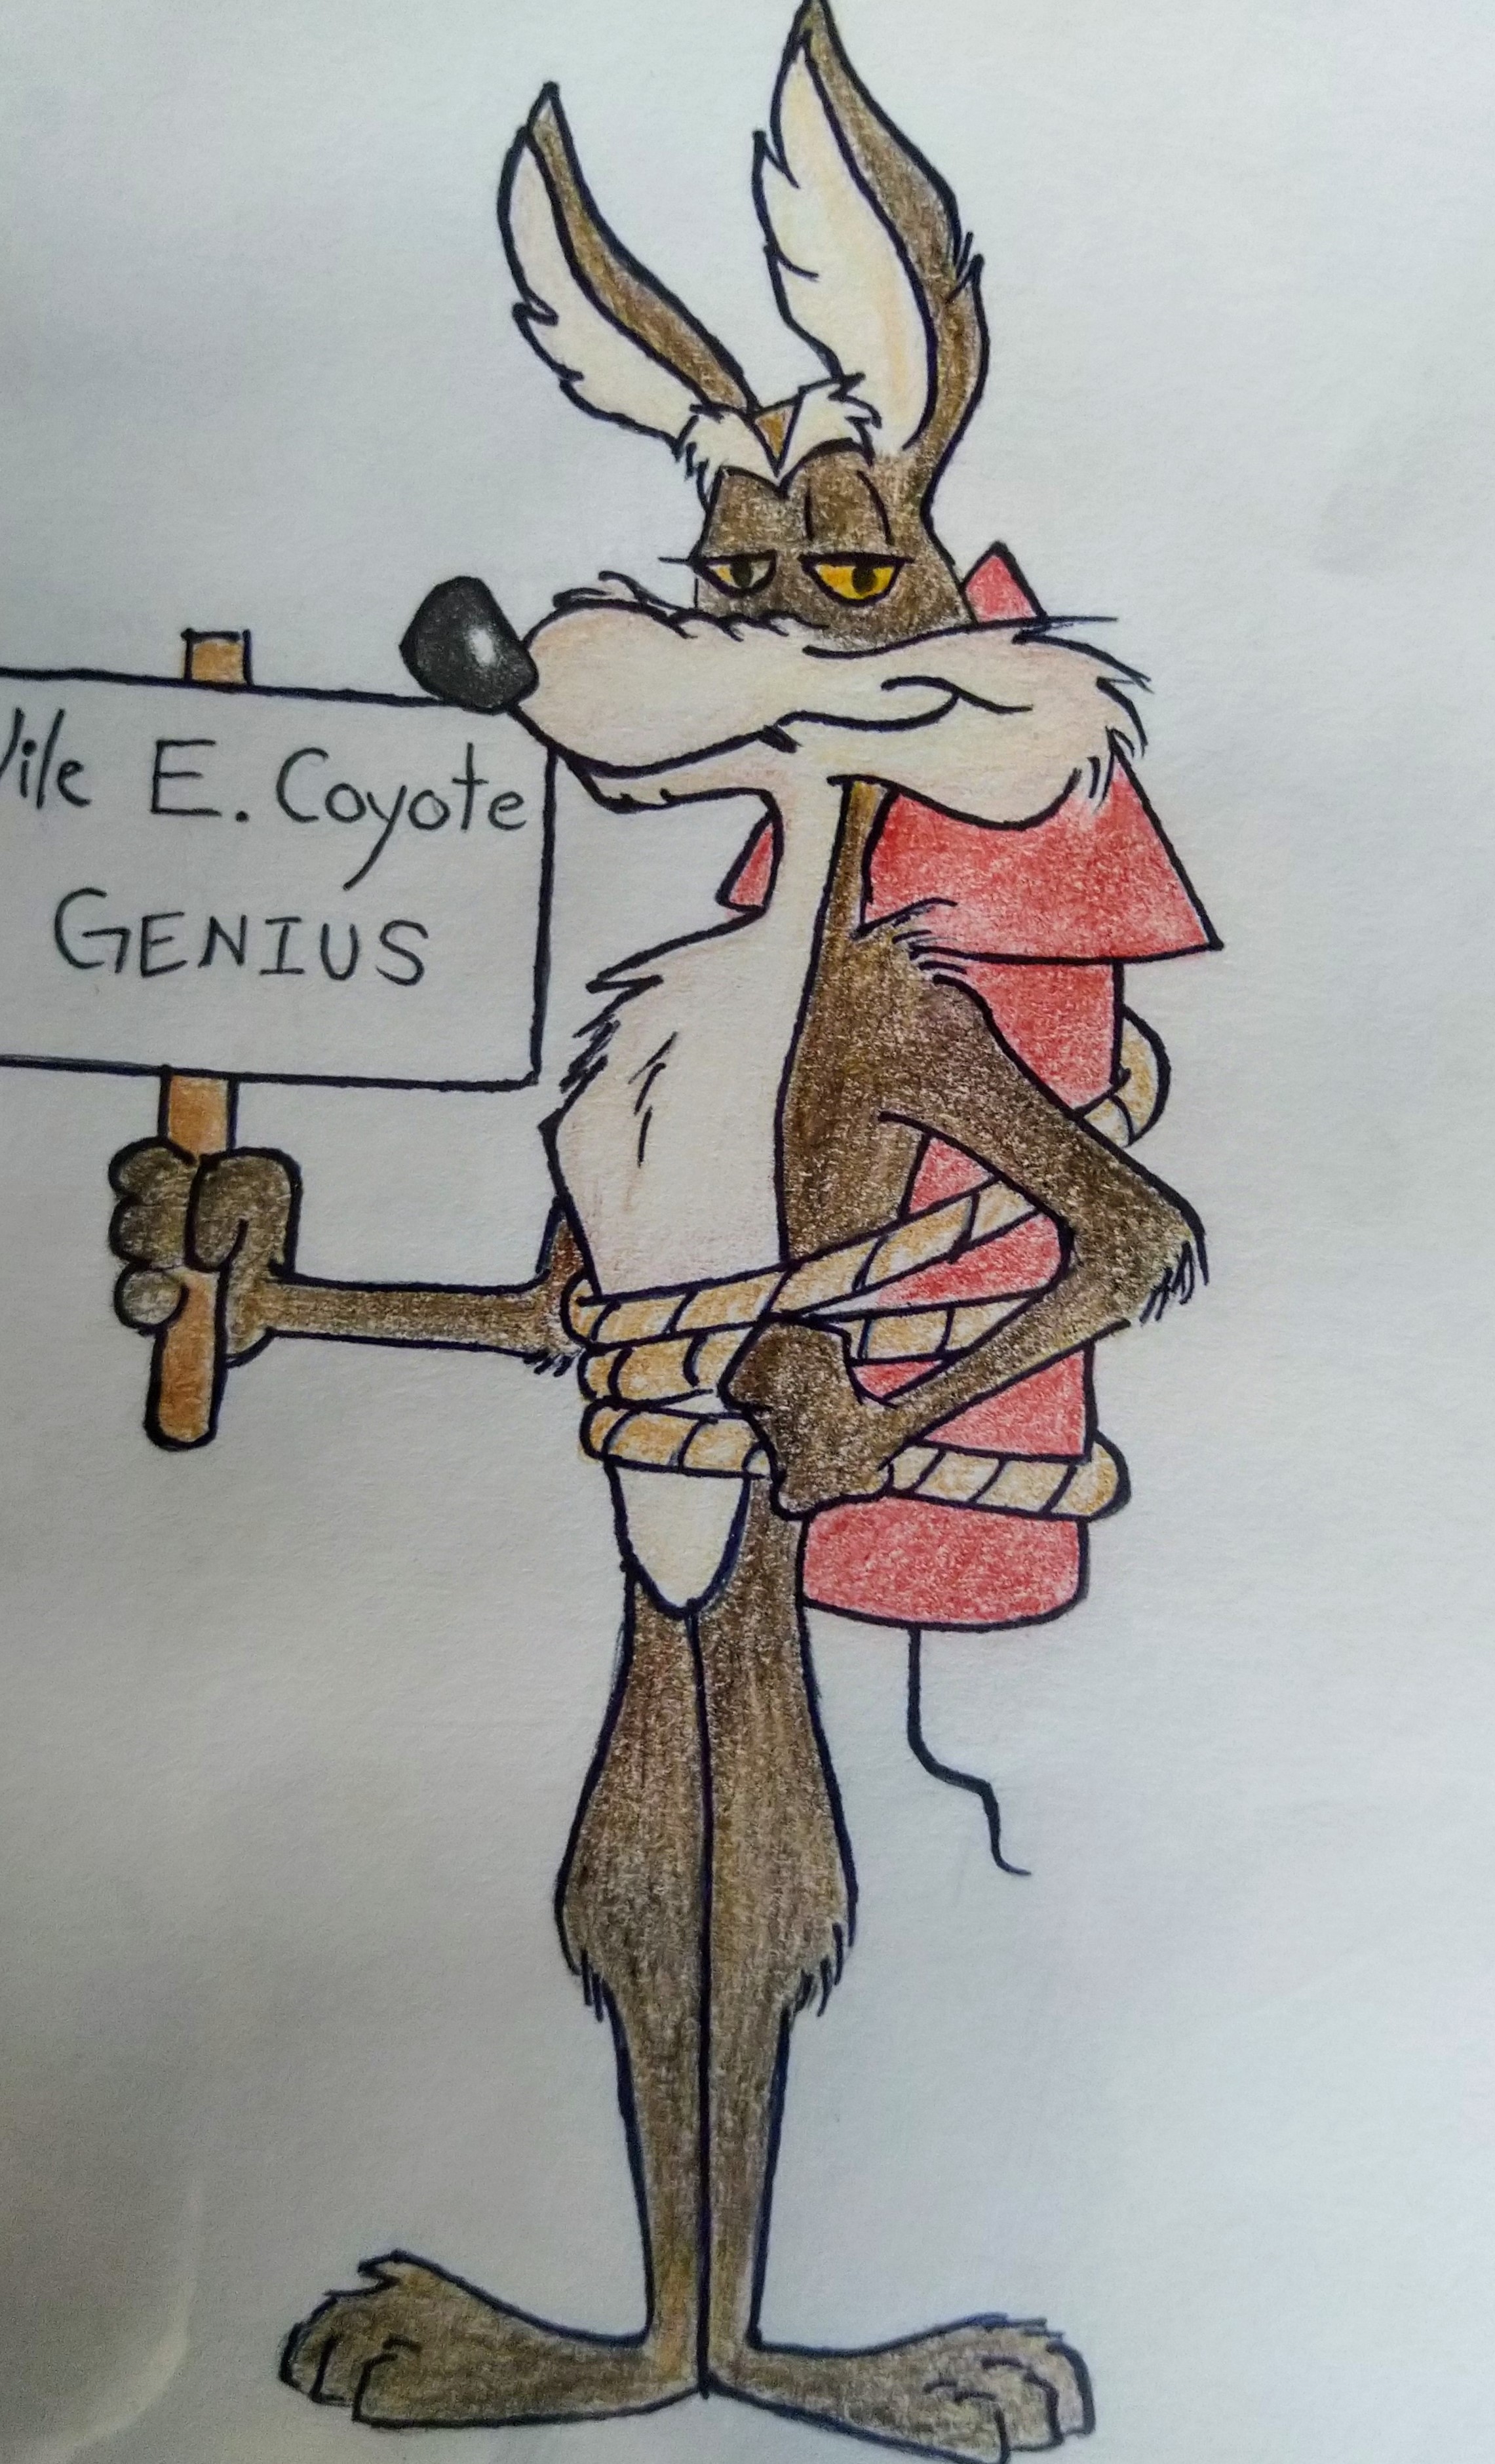 ile E. Coyote
GENIUS